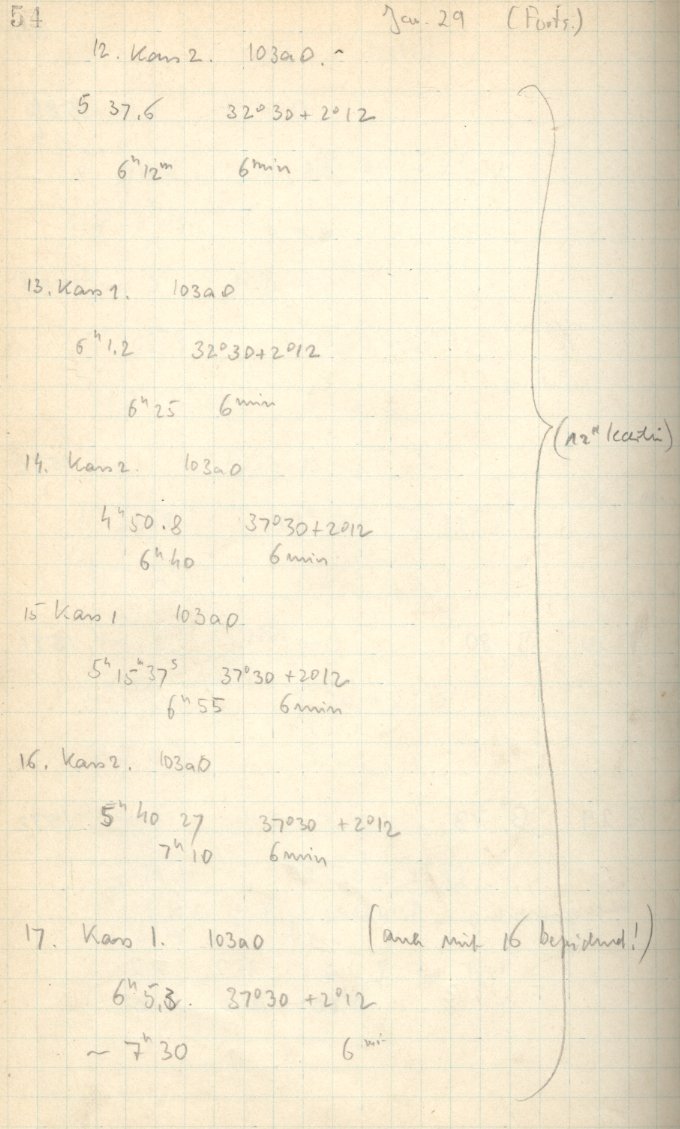 54 Jan. 29 (Forts.)
12. Kass 2. 103aO.
5 37.6 32°30+2°12
6ʰ12ᵐ 6min
13. Kass 1. 103aO
6ʰ1.2 32°30+2°12
6ʰ25 6min
14. Kass 2. 103aO
4ʰ50.8 37°30+2°12
6ʰ40 6min
15 Kass 1 103aO
5ʰ15ᵐ37ˢ 37°30+2°12
6ʰ55 6min
16. Kass 2. 103aO
5ʰ40 27 37°30 +2°12
7ʰ10 6min
17. Kass 1. 103aO (auch mit 16 bezeichnet!)
6ʰ5,3. 37°30 +2°12
~ 7ʰ30 6ᵐⁱⁿ